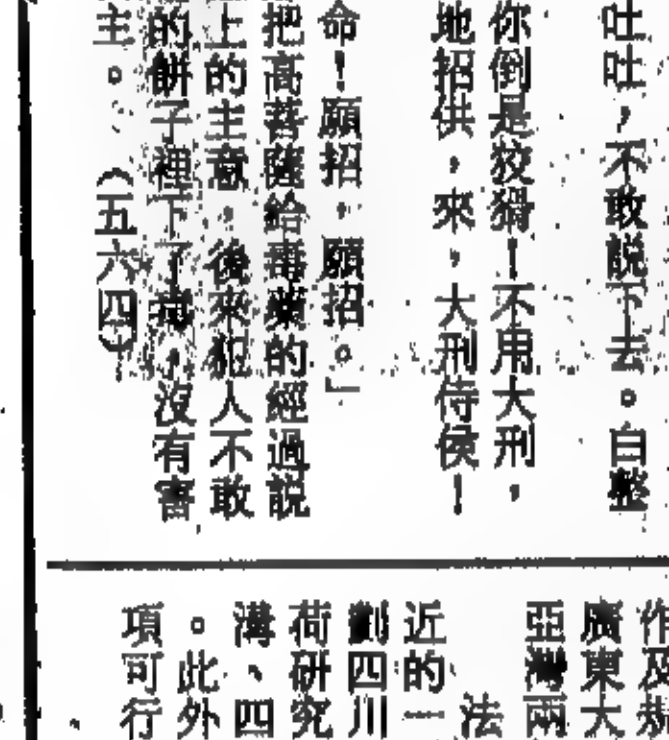 吐吐，不敢說下去。白整
你倒是狡猾！不用大刑，
地招供，來，大刑侍侯！
命！願招，願招。」
把高菩薩給毒藥的經過說
上的主意，後來犯人不敢
的餅子裡下了毒，沒有害
主。（五六四）
作及規
廣東大
亞灣兩
法
近的一
劃四川
荷研究
溝、四
。此外
項可行